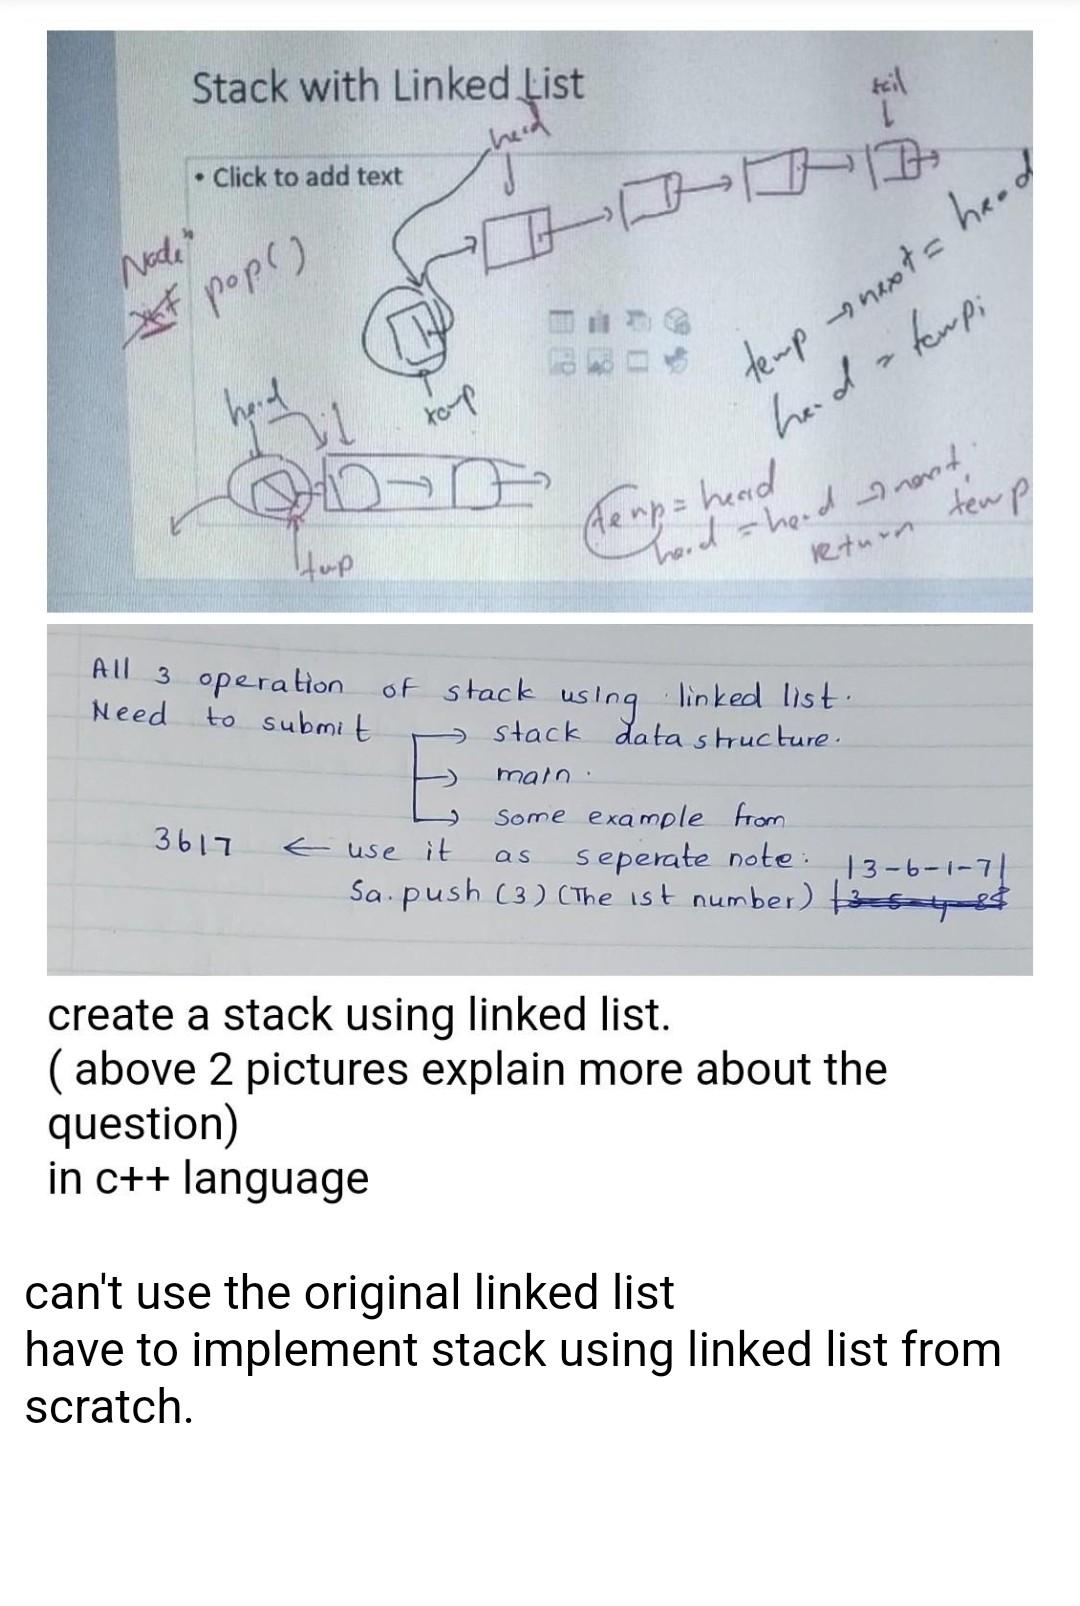 Stack with Linked List
head
tail
• Click to add text
Node*
pop()
temp → next = head
head = temp;
temp
head
temp = head
head = head → next;
return temp
All 3 operation of stack using linked list.
Need to submit → stack data structure.
→ main.
→ some example from
3617 ← use it as seperate note: |3-6-1-7|
Sa.push (3) (The 1st number)
create a stack using linked list.
( above 2 pictures explain more about the
question)
in c++ language
can't use the original linked list
have to implement stack using linked list from
scratch.